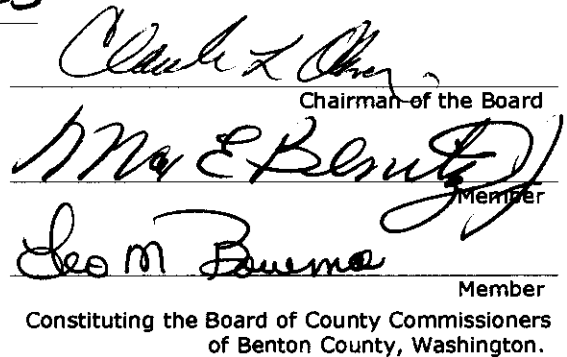 Claude L Oliver
Chairman of the Board
Max E Benitz Jr
Member
Leo M Bowman
Member
Constituting the Board of County Commissioners
of Benton County, Washington.